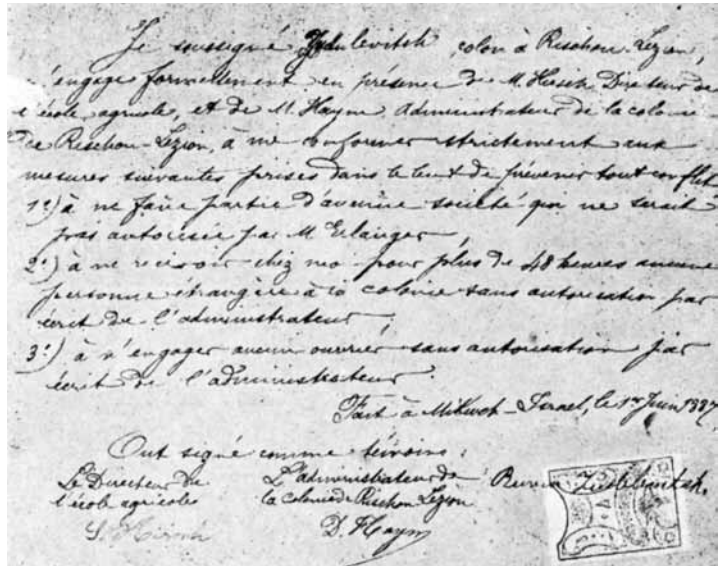 Je soussigné Judelevitch colon à Rischon-Lezion,
m'engage formellement en présence de M. Hirsch Directeur de
l'école agricole, et de M. Haym administrateur de la colonie
de Rischon-Lezion, à me conformer strictement aux
mesures suivantes prises dans le but de prévenir tout conflit
1º) à ne faire partie d'aucune société qui ne serait
pas autorisée par M Erlanger,
2º) à ne recevoir chez moi pour plus de 48 heures aucune
personne étrangère à la colonie sans autorisation par
écrit de l'administrateur;
3º) à n'engager aucun ouvrier sans autorisation par
écrit de l'administrateur.
Fait à Mikweh-Israel, le 1er Juin 1887,
Ont signé comme témoins:
Le Directeur de l'école agricole
L'administrateur de la colonie de Rischon Lezion
S. Hirsch
D. Haym